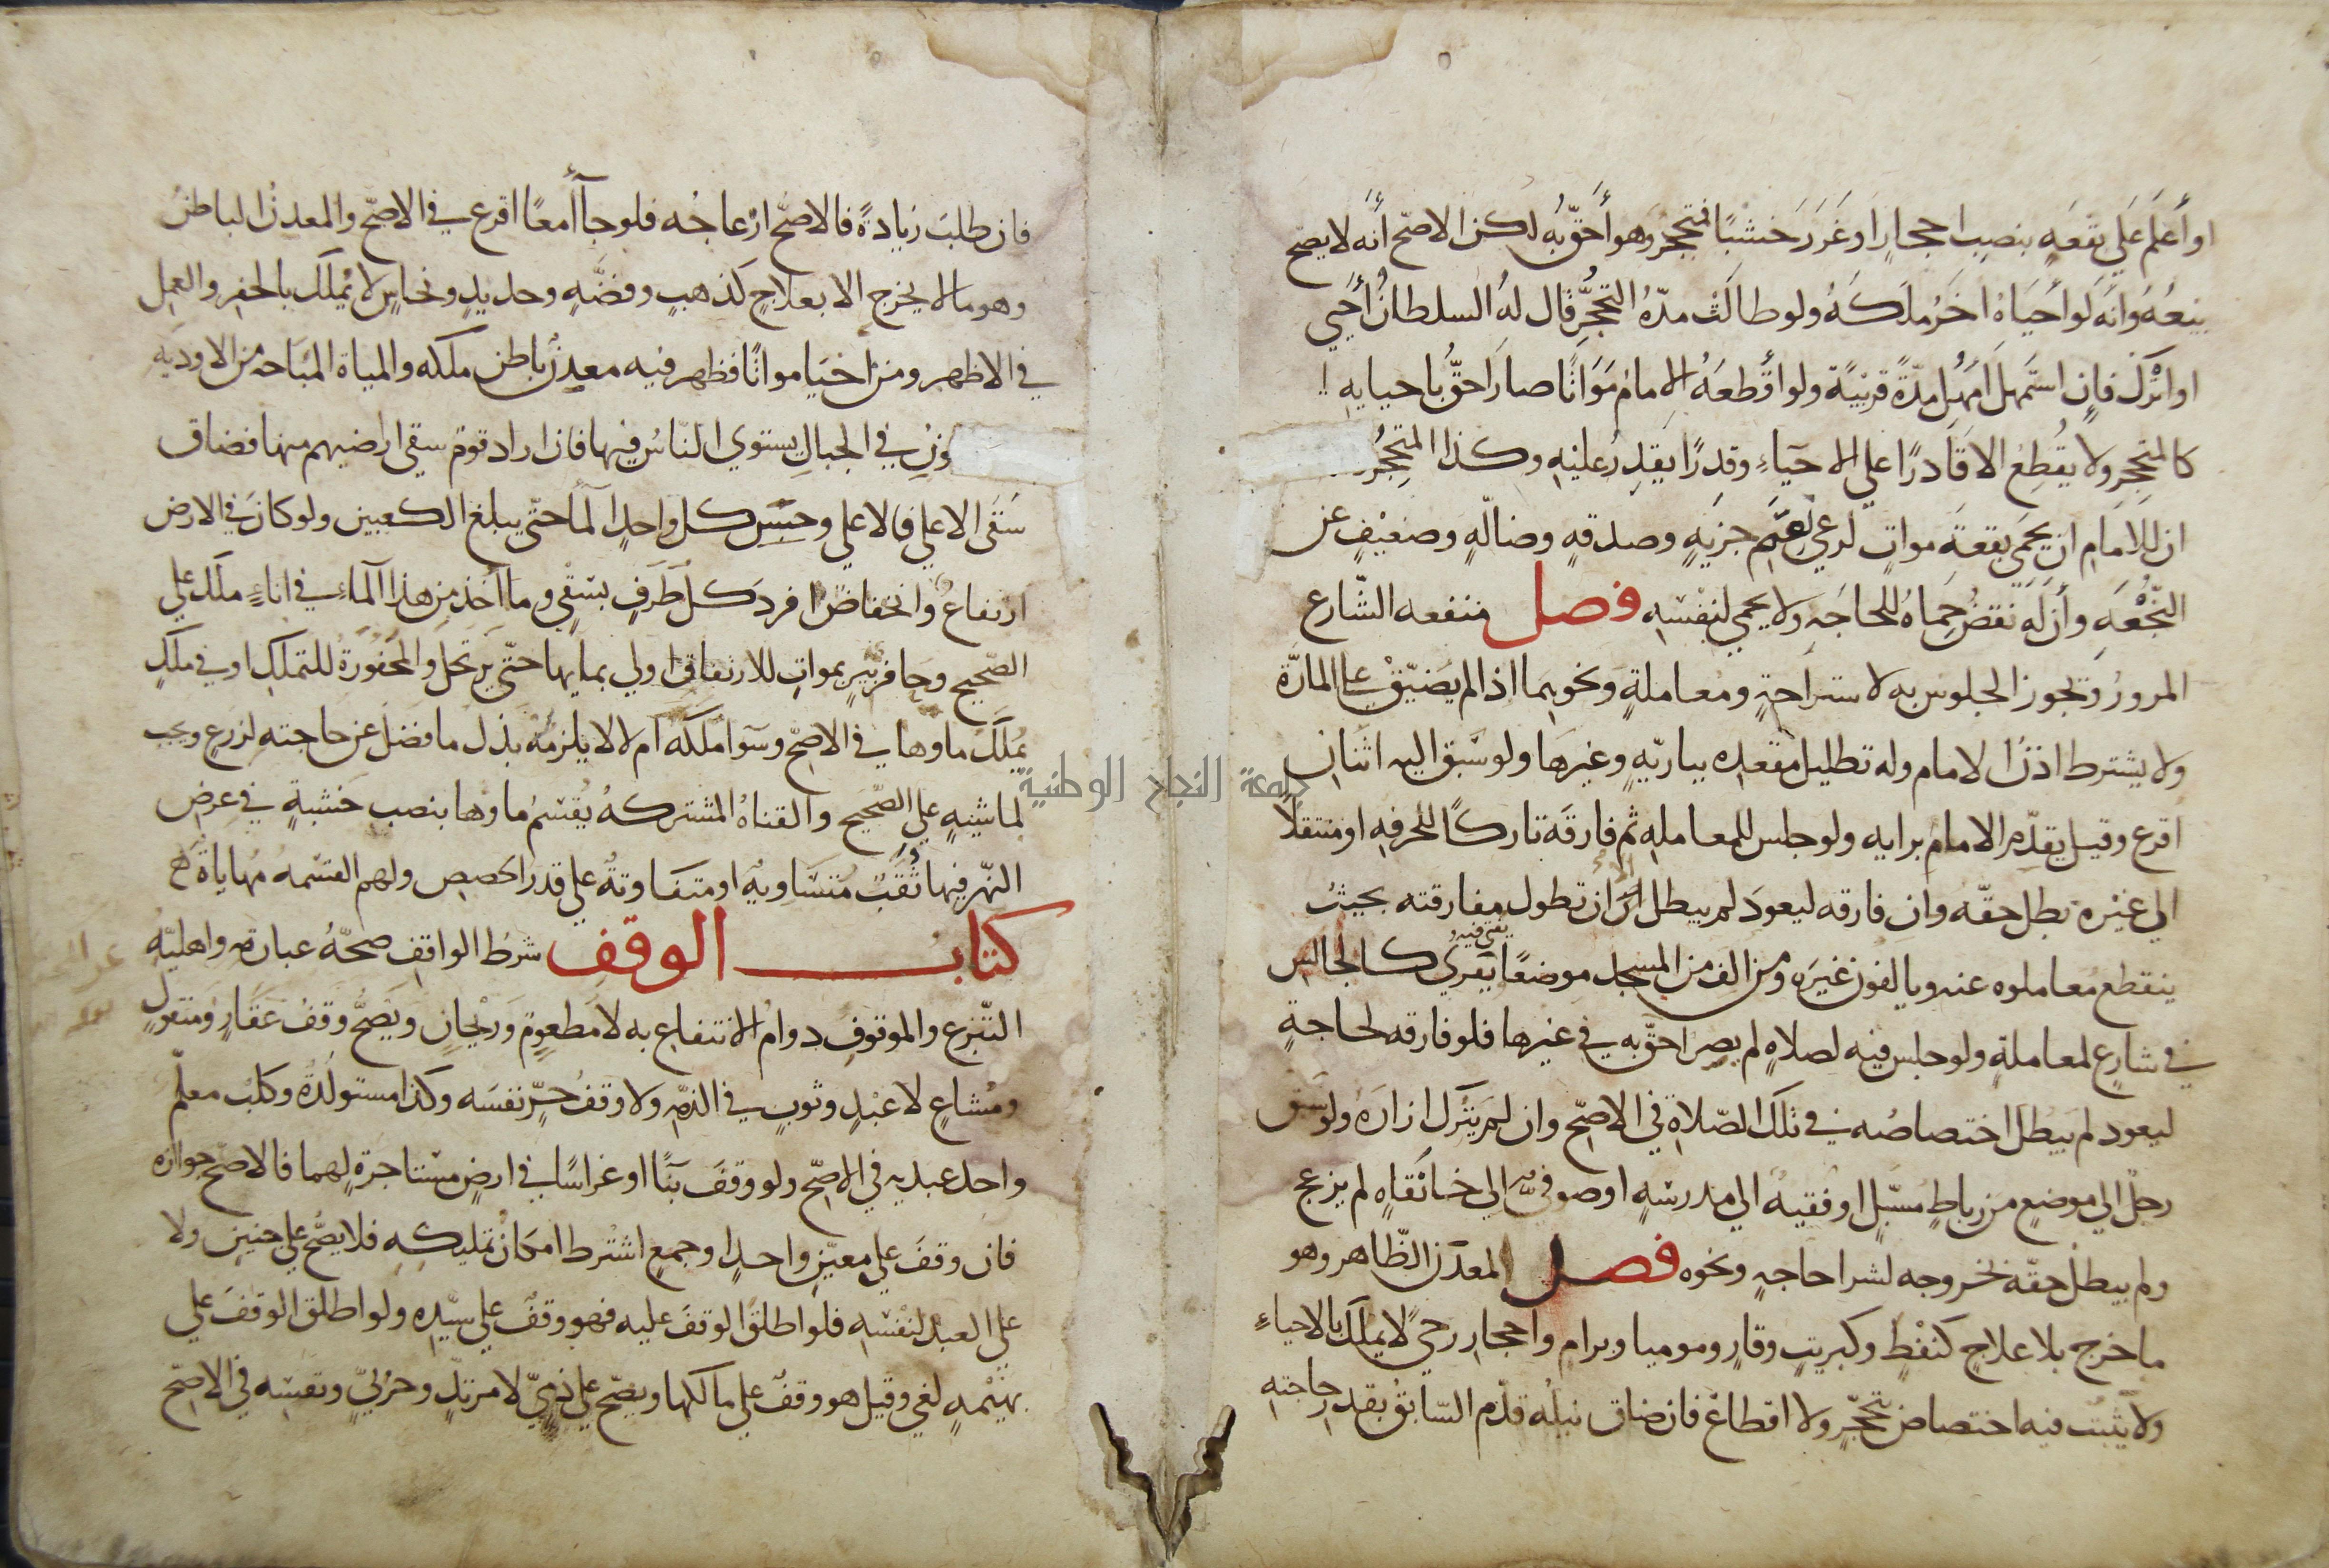 او أعلم علي بقعه بنصب احجار او غرر خشبًا فمتحجر وهو أحق به لكن الاصح أنه لا يصح
بيعه وانه لو أحياه اخر ملكه ولو طالت مدة التحجر قال له السلطان أحيي
او اترك فان استمهل امهل مدة قريبة ولو أقطعه الامام مواتا صار احق باحيايه
كالمتحجر ولا يقطع الا قادرًا علي الاحياء وقدرًا يقدر عليه وكذا المتحجر
ان للامام ان يحمي بقعة موات لرعي نعم جزية وصدقة وضالة وضعيف عن
النجعه وأن له نقض حماه للحاجه ولا يحمي لنفسه فصل منفعه الشارع
المرور ويجوز الجلوس به لاستراحة ومعاملة ونحوهما اذا لم يضيق علي المارة
ولا يشترط اذن الامام وله تظليل مقعده بباريه وغيرها ولو سبق اليه اثنان
اقرع وقيل يقدم الامام برايه ولو جلس للمعامله ثم فارقه تاركا للحرفه او منتقلًا
الي غيره بطل حقه وان فارقه ليعود لم يبطل الا ان تطول مفارقته بحيث
ينقطع معاملوه عنه ويالفون غيره ومن الف من المسجد موضعًا يفتي فيه ويقري كالجالس
في شارع لمعاملة ولو جلس فيه لصلاه لم يصر احق به في غيرها فلو فارقه لحاجة
ليعود لم يبطل اختصاصه في تلك الصلاة في الاصح وان لم يترك ازاره ولو سبق
رجل الي موضع من رباط مسبل او فقيه الي مدرسه او صوفي الي خانقاه لم يزعج
ولم يبطل حقه بخروجه لشرا حاجه ونحوه فصل المعدن الظاهر وهو
ما خرج بلا علاج كنفط وكبريت وقار وموميا وبرام واحجار رحي لا يملك بالاحياء
ولا يثبت فيه اختصاص بتحجر ولا اقطاع فان ضاق نيله قدم السابق بقدر حاجته
فان طلب زيادة فالاصح ازعاجه فلو جآأ معًا اقرع في الاصح والمعدن الباطن
وهو ما لا يخرج الا بعلاج كذهب وفضة وحديد ونحاس لا يملك بالحفر والعمل
في الاظهر ومن احيا مواتًا فظهر فيه معدن باطن ملكه والمياة المباحه من الاوديه
في الجبال يستوي الناس فيها فان اراد قوم سقي اراضيهم منها فضاق
سقي الاعلي فالاعلي وحبس كل واحد المآ حتي يبلغ الكعبين ولو كان في الارض
ارتفاع وانخفاض افرد كل طرف بسقي وما أخذ من هذا المآء في اناء ملك علي
الصحيح وحافر بير بموات للارتفاق اولي بمايها حتي يرتحل والمحفورة للتملك او في ملك
يملك ماوها في الاصح وسوا ملكه ام لا لا يلزمه بذل ما فضل عن حاجته لزرع ويجب
لماشية علي الصحيح والقناه المشتركه يقسم ماوها بنصب خشبة في عرض
النهر فيها ثقب متساويه او متفاوته علي قدر الحصص ولهم القسمه مهاياة
كتاب الوقف شرط الواقف صحة عبارته واهلية
التبرع والموقوف دوام الانتفاع به لا مطعوم وريحان ويصح وقف عقار ومنقول
ومشاع لا عبد وثوب في الذمه ولا وقف حر نفسه وكذا مستولدة وكلب معلم
واحد عبديه في الاصح ولو وقف بنآ او غراسا في ارض مستاجرة لهما فالاصح جوازه
فان وقف علي معين واحد او جمع اشترط امكان تمليكه فلا يصح علي جنين ولا
علي العبد لنفسه فلو اطلق الوقف عليه فهو وقف علي سيده ولو اطلق الوقف علي
بهيمه لغي وقيل هو وقف علي مالكها ويصح علي ذمي لا مرتد وحربي ونفسه في الاصح
جامعة النجاح الوطنية